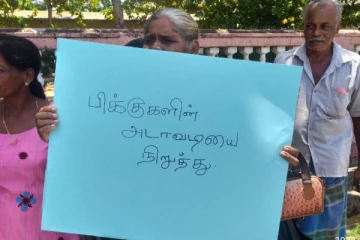 பிக்குகளின்
அடாவடியை
நிறுத்து.